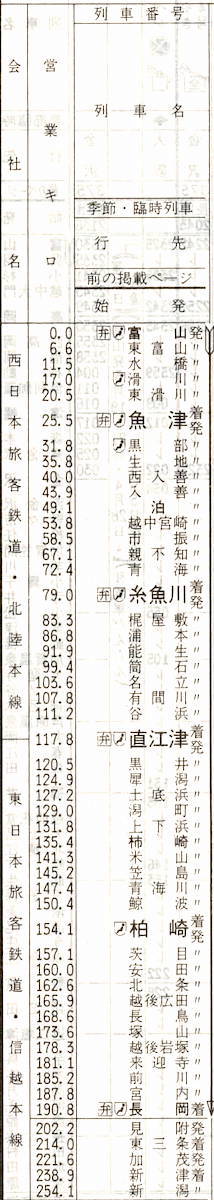 列車番号
会社名
営業キロ
列車名
季節・臨時列車
行先
前の掲載ページ
始発
西日本旅客鉄道・北陸本線
0.0 弁 富山発
6.6 東富山〃
11.5 水橋〃
17.0 滑川〃
20.5 東滑川〃
25.5 弁 魚津着発
31.8 黒部〃
35.8 生地〃
40.0 西入善〃
43.9 入善〃
49.1 泊〃
53.8 越中宮崎〃
58.5 市振〃
67.1 親不知〃
72.4 青海〃
79.0 弁 糸魚川着発
83.3 梶屋敷〃
86.8 浦本〃
91.9 能生〃
99.4 筒石〃
103.6 名立〃
107.8 有間川〃
111.2 谷浜〃
117.8 弁 直江津着発
東日本旅客鉄道・信越本線
120.5 黒井〃
124.9 犀潟〃
127.2 土底浜〃
129.0 潟町〃
131.8 上下浜〃
135.4 柿崎〃
141.3 米山〃
145.2 笠島〃
147.4 青海川〃
150.4 鯨波〃
154.1 柏崎着発
157.1 茨目〃
160.0 安田〃
162.6 北条〃
165.9 越後広田〃
168.6 長鳥〃
173.6 塚山〃
178.3 越後岩塚〃
181.1 来迎寺〃
185.2 前川〃
187.8 宮内〃
190.8 弁 長岡着
202.2 見附発
214.0 東三条着
221.6 加茂発
238.9 新津着
254.1 新潟〃